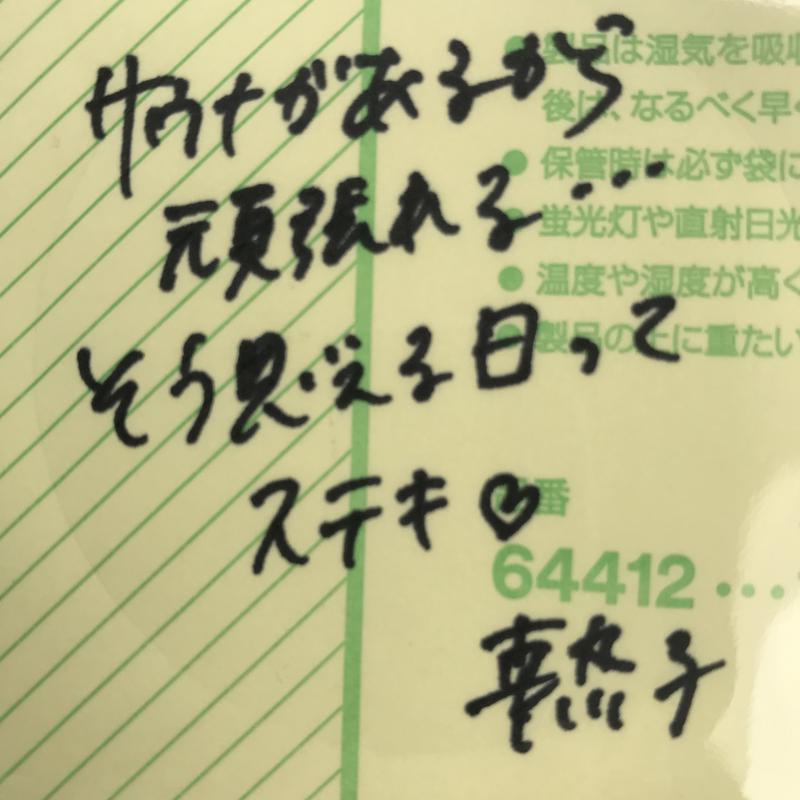 サウナがあるから
頑張れる…
そう思える日って
ステキ♡
熱子
●製品は湿気を吸収
後は、なるべく早く
●保管時は必ず袋に
●蛍光灯や直射日光
●温度や湿度が高く
●製品の上に重たい
品番
64412…